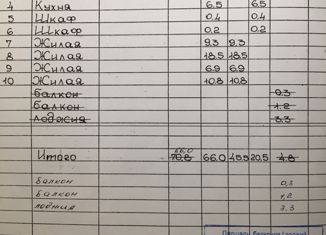 4 Кухня 6.5 6.5
5 Шкаф 0,4 0,4
6 Шкаф 0.2 0.2
7 Жилая 9.3 9.3
8 Жилая 18.5 18.5
9 Жилая 6.9 6.9
10 Жилая 10.8 10.8
балкон 0.3
балкон 1.2
лоджия 3.3
66.0
Итого 70.8 66.0 45.5 20.5 4.8
Балкон 0,3
Балкон 1,2
лоджия 3.3